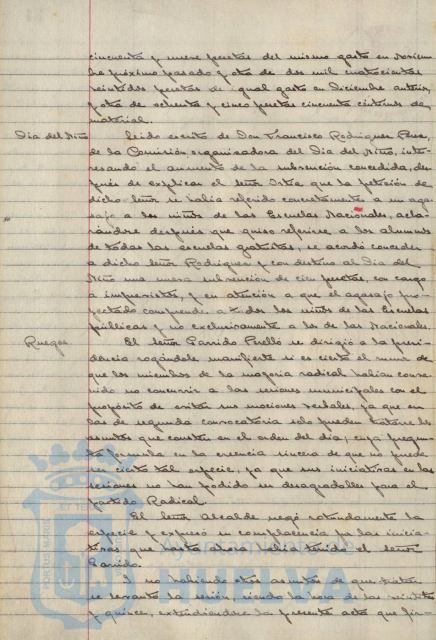 cincuenta y nueve pesetas del mismo gasto en Noviem-
bre próximo pasado y otra de dos mil cuatrocientas
veintidos pesetas de igual gasto en Diciembre anterior,
y otra de ochenta y cinco pesetas cincuenta céntimos de
material.
Dia del Niño
Leido escrito de Don Francisco Rodriguez
de la Comisión organizadora del Dia del Niño, inte-
resando el aumento de la subvención concedida, des-
pués de explicar el señor que la petición de
dicho señor se habia referido concretamente a un aga-
sajo a los niños de las Escuelas Nacionales, acla-
rándose después que quiso referirse a los alumnos
de todas las escuelas gratuitas, se acordó conceder
a dicho señor Rodriguez y con destino al Dia del
Niño una nueva subvención de cien pesetas, con cargo
a imprevistos, y en atención a que el agasajo pro-
yectado comprende a todos los niños de las Escuelas
públicas y no exclusivamente a los de las Nacionales.
Ruegos
El señor Garrido Perelló se dirigió a la presi-
dencia rogándole manifieste si es cierto el rumor de
que los miembros de la mayoria radical habian conve-
nido no concurrir a las sesiones municipales con el
propósito de evitar sus mociones verbales, ya que en
las de segunda convocatoria solo pueden tratarse los
asuntos que consten en el orden del dia; cuya pregun-
ta formula en la creencia sincera de que no puede
ser cierto tal especie, ya que sus iniciativas en las
sesiones no han podido ser desagradables para el
partido Radical.
El señor Alcalde negó rotundamente la
especie y expuso su complacencia en las inicia-
tivas que hasta ahora habia tenido el señor
Garrido.
Y no habiendo otros asuntos de que tratar
se levantó la sesión, siendo la hora de las veintitres
y quince, extendiéndose la presente acta que fir-
Ayuntamiento de
HUELVA